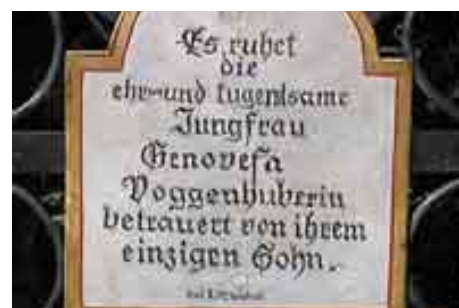 Es ruhet
die
ehr-und tugendsame
Jungfrau
Genovefa
Voggenhuberin
betrauert von ihrem
einzigen Sohn.